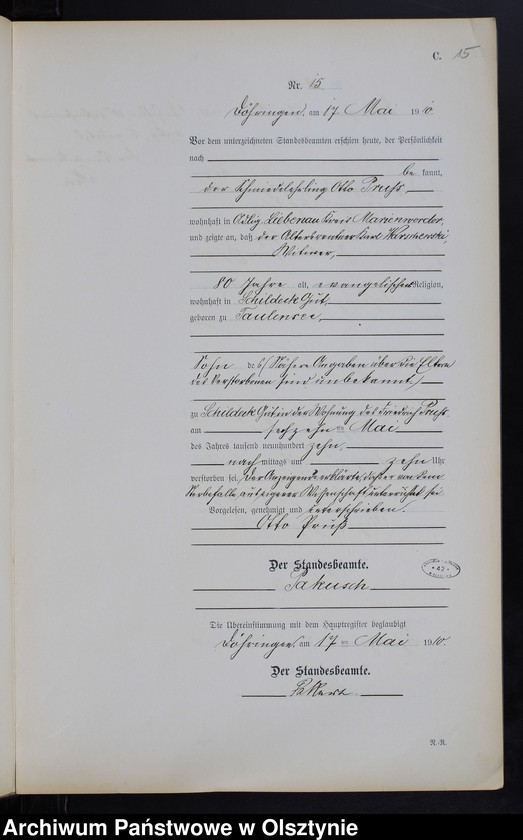 C. 15
Nr. 15
Döhringen, am 17 Mai 1910
Vor dem unterzeichneten Standesbeamten erschien heute, der Persönlichkeit
nach
be kannt,
der Schmiedelehrling Otto Pruß
wohnhaft in Adlig Liebenau Kreis Marienwerder,
und zeigte an, daß der Altersrentner Karl
Witwer,
80 Jahre alt, evangelischer Religion,
wohnhaft in Schildeck Gut,
geboren zu Taulensee,
Sohn des (Nähere Angaben über die Eltern
des Verstorbenen sind unbekannt)
zu Schildeck Gut in der Wohnung des Friedrich Pruß
am sechzehnten Mai
des Jahres tausend neunhundert zehn,
nach mittags um zehn Uhr
verstorben sei. Der Anzeigende erklärte, daß er von dem
Sterbefalle aus eigener Wissenschaft unterrichtet sei
Vorgelesen, genehmigt und unterschrieben.
Otto Pruß
Der Standesbeamte.
Pakusch
42
Die Übereinstimmung mit dem Hauptregister beglaubigt
Döhringen, am 17 ten Mai 1910.
Der Standesbeamte.
N.-R.
Archiwum Państwowe w Olsztynie